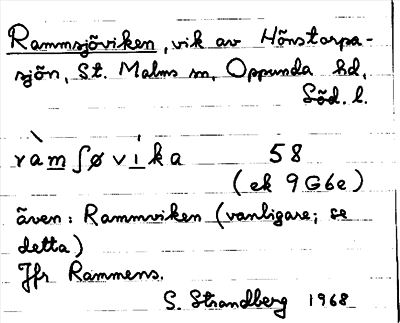 Rammsjöviken, vik av Hönstorpa-
sjön, St. Malms sn, Oppunda hd,
Söd. l.
ràm ʃø vi ka 58
(ek 9G6e)
även: Rammviken (vanligare; se
detta)
Jfr Rammens.
S. Strandberg 1968